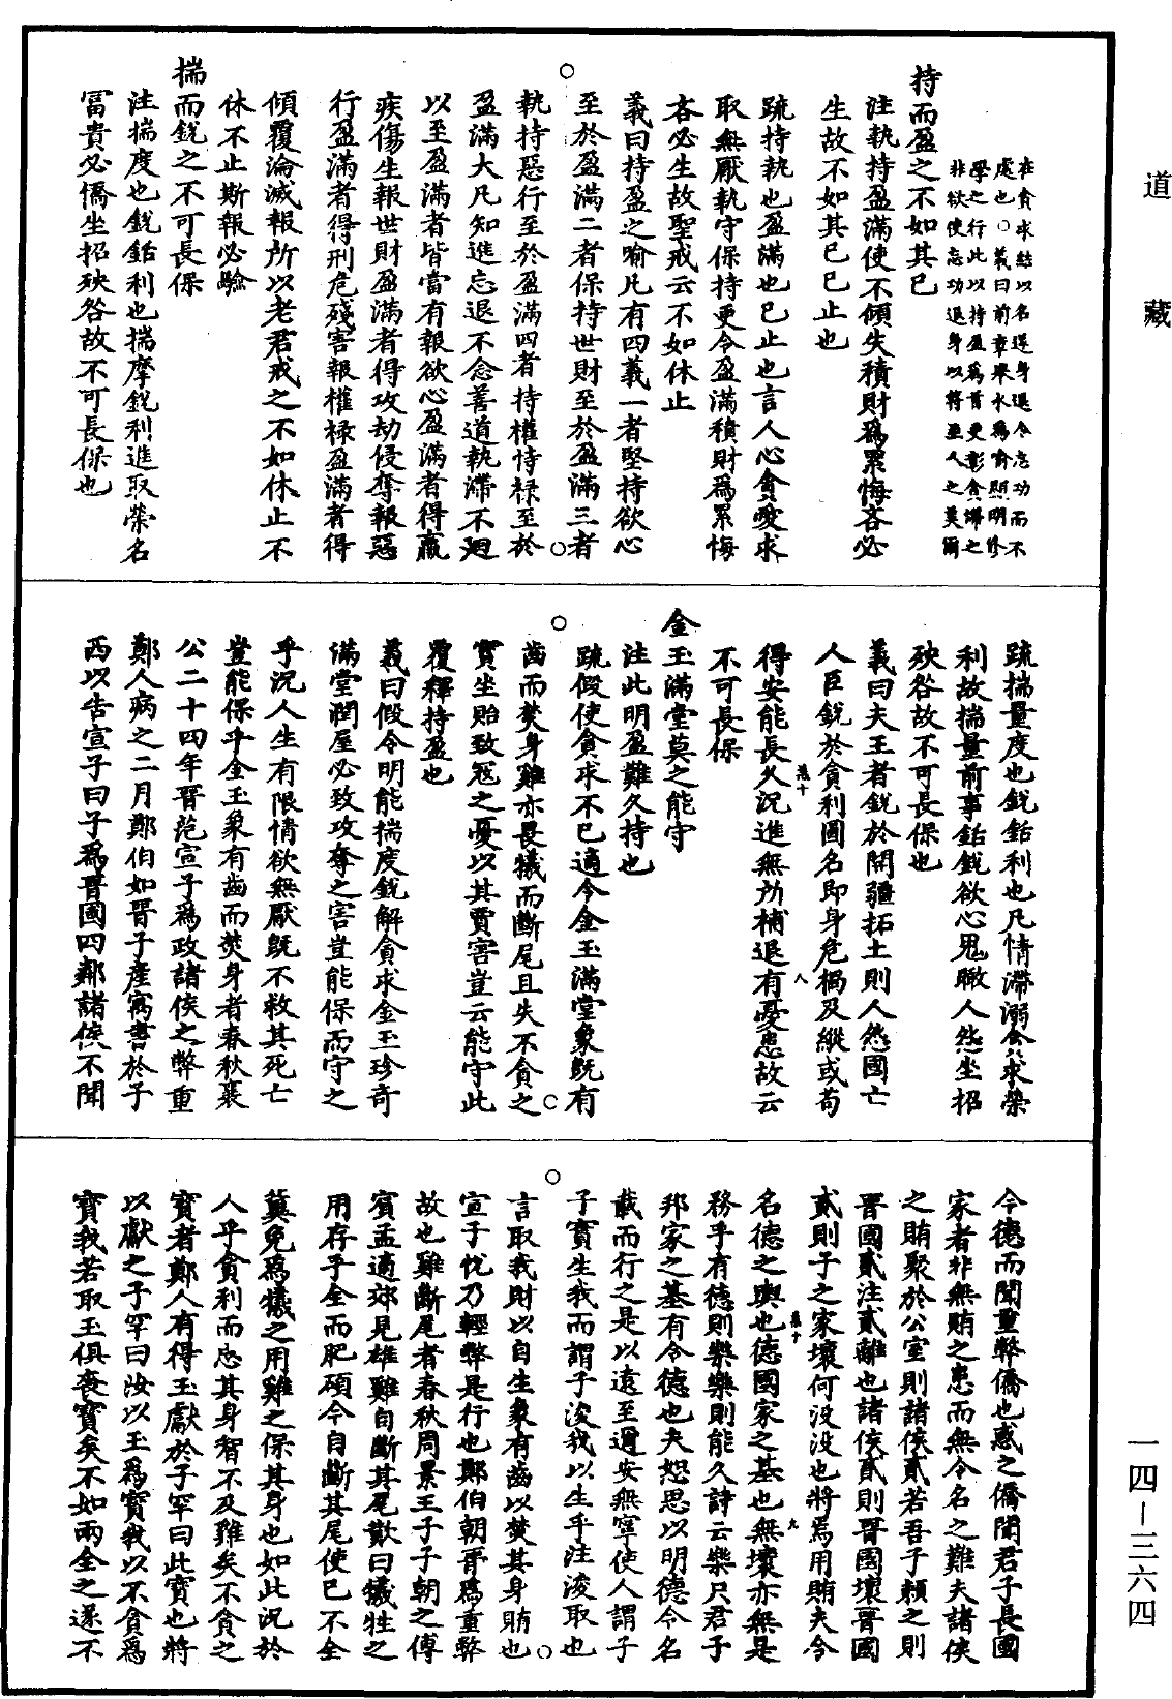 道藏
在貪求結以名遂身退令忘功而不
處也○義曰前章舉水爲喻照明修
學之行此以持盈爲首更彰貪壻之
非欲使忘功退身以將至人之美爾
持而盈之不如其已
注執持盈滿使不傾失積財爲累悔吝必
生故不如其已已止也
疏持執也盈滿也已止也言人心貪愛求
取無厭執守保持更令盈滿積財爲累悔
吝必生故聖戒云不如休止
義曰持盈之喻凡有四義一者堅持欲心
至於盈滿二者保持世財至於盈滿三者
執持惡行至於盈滿四者持權恃祿至於
盈滿大凡知進忘退不念善道執滯不迴
以至盈滿者皆當有報欲心盈滿者得羸
疾傷生報世財盈滿者得攻劫侵奪報惡
行盈滿者得刑危殘害報權祿盈滿者得
傾覆淪滅報所以老君戒之不如休止不
休不止斯報必驗
揣而銳之不可長保
注揣度也銳銛利也揣摩銳利進取榮名
富貴必憍坐招殃咎故不可長保也
疏揣量度也銳銛利也凡情滯溺貪求榮
利故揣量前事銛銳欲心鬼瞰人怨坐招
殃咎故不可長保也
義曰夫王者銳於開疆拓土則人怨國亡
人臣銳於貪利圖名即身危禍及縱或苟
得安能長久況進無所補退有憂患故云
不可長保
金玉滿堂莫之能守
注此明盈難久持也
疏假使貪求不已適令金玉滿堂象既有
齒而焚身雞亦畏犧而斷尾且失不貪之
寶坐貽致寇之憂以其賈害豈云能守此
覆釋持盈也
義曰假令明能揣度銳解貪求金玉珍奇
滿堂潤屋必致攻奪之害豈能保而守之
乎況人生有限情欲無厭既不救其死亡
豈能保乎金玉象有齒而焚身者春秋襄
公二十四年晉范宣子爲政諸侯之幣重
鄭人病之二月鄭伯如晉子產寓書於子
西以告宣子曰子爲晉國四鄰諸侯不聞
令德而聞重幣僑也惑之僑聞君子長國
家者非無賄之患而無令名之難夫諸侯
之賄聚於公室則諸侯貳若吾子賴之則
晉國貳注貳離也諸侯貳則晉國壞晉國
貳則子之家壞何沒沒也將焉用賄夫令
名德之輿也德國家之基也無壞亦無是
務乎有德則樂樂則能久詩云樂只君子
邦家之基有令德也夫恕思以明德令名
載而行之是以遠至邇安無寧使人謂子
子實生我而謂子浚我以生乎注浚取也
言取我財以自生象有齒以焚其身賄也
宣子悅乃輕幣是行也鄭伯朝晉爲重幣
故也雞斷尾者春秋周景王子子朝之傅
賓孟適郊見雄雞自斷其尾歎曰犧牲之
用存乎全而肥碩今自斷其尾使已不全
冀免爲犧之用雞之保其身也如此況於
人乎貪利而忘其身智不及雞矣不貪之
寶者鄭人有得玉獻於子罕曰此寶也將
以獻之子罕曰汝以玉爲寶我以不貪爲
寶我若取玉俱喪寶矣不如兩全之遂不
一四—三六四